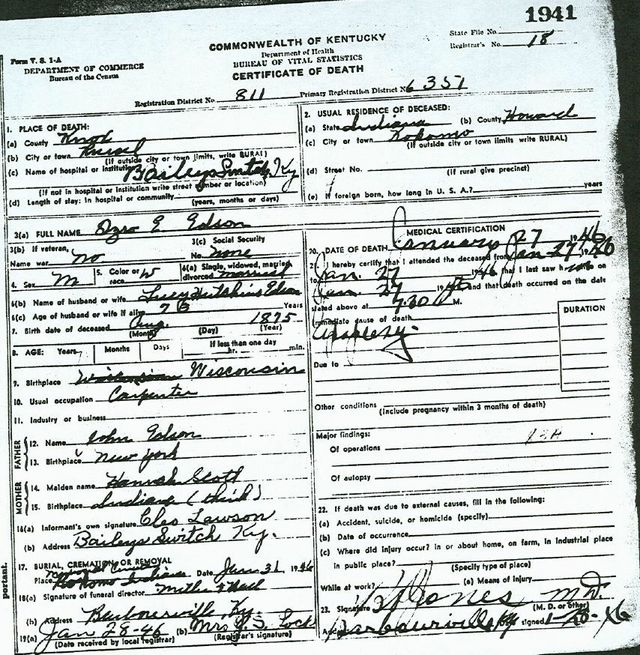 1941
COMMONWEALTH OF KENTUCKY
Department of Health
BUREAU OF VITAL STATISTICS
CERTIFICATE OF DEATH
Form V. S. 1-A
DEPARTMENT OF COMMERCE
Bureau of the Census
State File No.
Registrar's No. 18
Registration District No. 811
Primary Registration District No. 6351
1. PLACE OF DEATH:
(a) County Knox
(b) City or town Rural
(If outside city or town limits, write RURAL)
(c) Name of hospital or institution: Baileys Switch, Ky
(If not in hospital or institution write street number or location)
(d) Length of stay: In hospital or community (years, months or days)
2. USUAL RESIDENCE OF DECEASED:
(a) State Indiana (b) County Howard
(c) City or town Kokomo
(If outside city or town limits, write RURAL)
(d) Street No. (If rural give precinct)
(e) If foreign born, how long in U. S. A.? years
3(a) FULL NAME E Edson
3(b) If veteran, Name war no
3(c) Social Security No. none
4. Sex M 5. Color or race W 6(a) Single, widowed, married, divorced married
6(b) Name of husband or wife Lucy Hutchins Edson
6(c) Age of husband or wife if alive Years
7. Birth date of deceased Aug 1875
(Month) (Day) (Year)
8. AGE: Years Months Days If less than one day
hr. min.
9. Birthplace Wisconsin
10. Usual occupation Carpenter
11. Industry or business
FATHER
12. Name John Edson
13. Birthplace New York
MOTHER
14. Maiden name Hannah Scott
15. Birthplace Indiana (think)
16(a) Informant's own signature Cleo Lawson
(b) Address Baileys Switch Ky.
17. BURIAL, CREMATION OR REMOVAL
Place Kokomo Indiana Date Jan 31 1946
18(a) Signature of funeral director
(b) Address Barbourville, Ky.
19(a) Jan 28-46 (b) Mrs Lock
(Date received by local registrar) (Registrar's signature)
MEDICAL CERTIFICATION
20. DATE OF DEATH January 27 1946
21. I hereby certify that I attended the deceased from Jan 27 1946
Jan. 27 1946 that I last saw him on
Jan 27 1946 and that death occurred on the date
stated above at 7:30 M.
Immediate cause of death
Apoplexy
DURATION
Due to
Other conditions
(Include pregnancy within 3 months of death)
Major findings:
Of operations
Of autopsy
22. If death was due to external causes, fill in the following:
(a) Accident, suicide, or homicide (specify)
(b) Date of occurrence
(c) Where did injury occur? in or about home, on farm, in industrial place
in public place?
(Specify type of place)
While at work? (e) Means of injury
23. Signature Jones M.D.
(M. D. or other)
Address Barbourville Ky signed
portant.